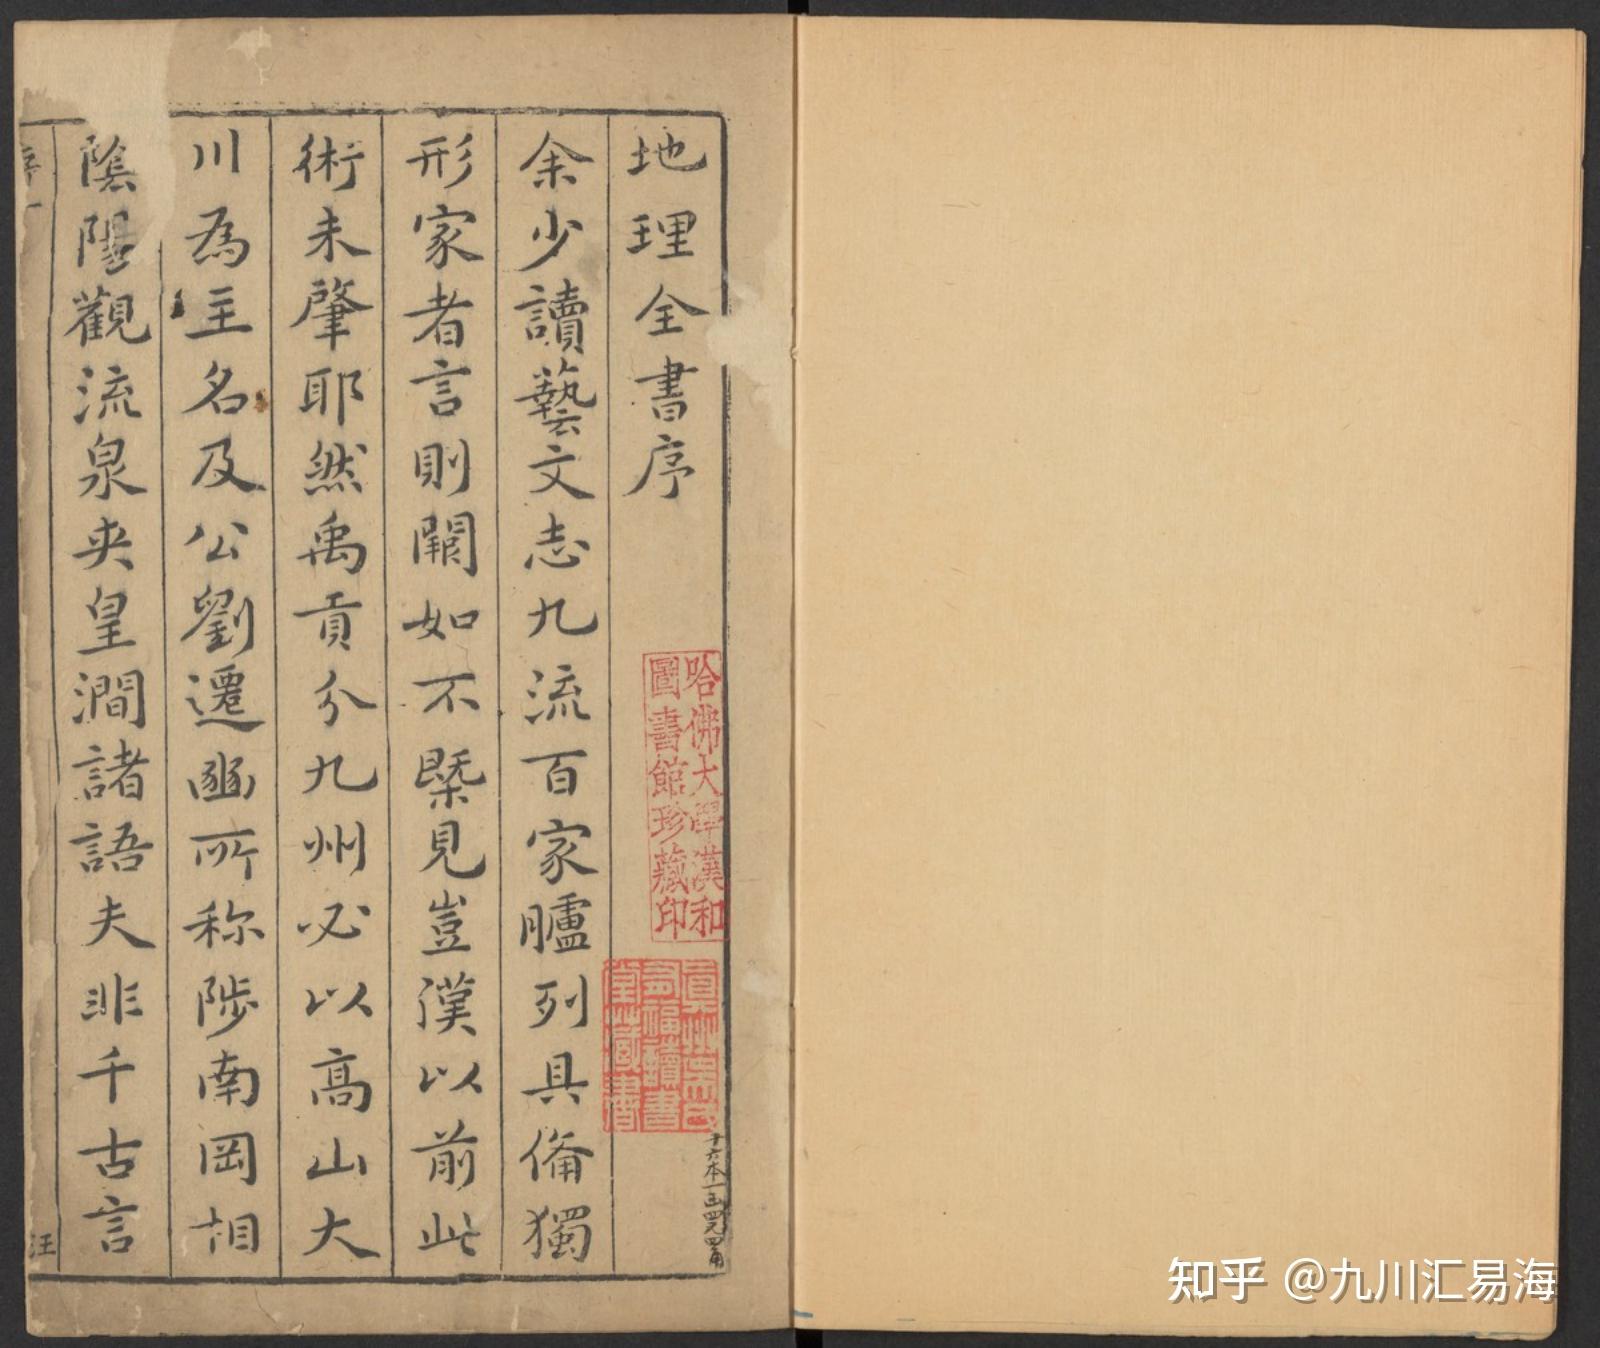 地理全書序
余少讀藝文志九流百家臚列具俻獨
形家者言則闕如不槩見豈漢以前此
術未肇耶然禹貢分九州必以高山大
川為主名及公劉遷豳所称陟南岡相
陰陽觀流泉夾皇澗諸語夫非千古言
序一
汪
哈佛大學漢和
圖書館珍藏印
真州吳氏
有福讀書
堂藏書
十六本一函四元四角
知乎 @九川汇易海